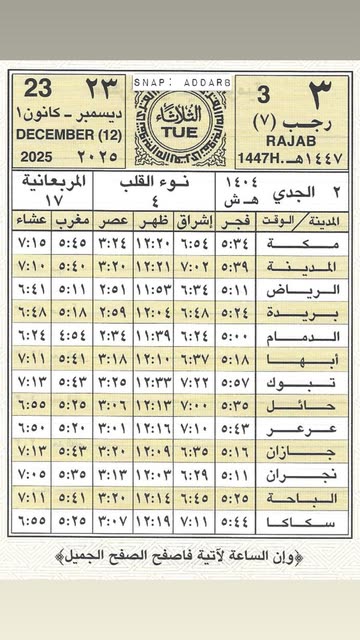 SNAP: ADDARB
23 ٢٣
ديسمبر - كانون١
DECEMBER (12)
2025 ٢٠٢٥
الثلاثاء
TUE
3 ٣
رجب (٧)
RAJAB
1447H. ١٤٤٧هـ
٢ الجدي ١٤٠٤ هـ ش
نوء القلب ٤
المربعانية ١٧
المدينة / الوقت فجر إشراق ظهر عصر مغرب عشاء
مكة ٥:٣٤ ٦:٥٤ ١٢:٢٠ ٣:٢٤ ٥:٤٥ ٧:١٥
المدينة ٥:٣٩ ٧:٠٢ ١٢:٢١ ٣:٢٠ ٥:٤٠ ٧:١٠
الرياض ٥:١١ ٦:٣٤ ١١:٥٣ ٢:٥١ ٥:١١ ٦:٤١
بريدة ٥:٢٤ ٦:٤٨ ١٢:٠٤ ٢:٥٩ ٥:١٨ ٦:٤٨
الدمام ٥:٠٠ ٦:٢٤ ١١:٣٩ ٢:٣٤ ٤:٥٤ ٦:٢٤
أبها ٥:١٨ ٦:٣٧ ١٢:١٠ ٣:١٨ ٥:٤١ ٧:١١
تبوك ٥:٥٧ ٧:٢٢ ١٢:٣٣ ٣:٢٥ ٥:٤٣ ٧:١٣
حائل ٥:٣٥ ٧:٠٠ ١٢:١٣ ٣:٠٦ ٥:٢٥ ٦:٥٥
عرعر ٥:٤٣ ٧:١٠ ١٢:١٦ ٣:٠١ ٥:٢٠ ٦:٥٠
جازان ٥:١٦ ٦:٣٥ ١٢:٠٩ ٣:٢٠ ٥:٤٣ ٧:١٣
نجران ٥:١١ ٦:٢٩ ١٢:٠٣ ٣:١٣ ٥:٣٥ ٧:٠٥
الباحة ٥:٢٥ ٦:٤٥ ١٢:١٤ ٣:٢٠ ٥:٤١ ٧:١١
سكاكا ٥:٤٤ ٧:١١ ١٢:١٩ ٣:٠٧ ٥:٢٥ ٦:٥٥
﴿وإن الساعة لآتية فاصفح الصفح الجميل﴾